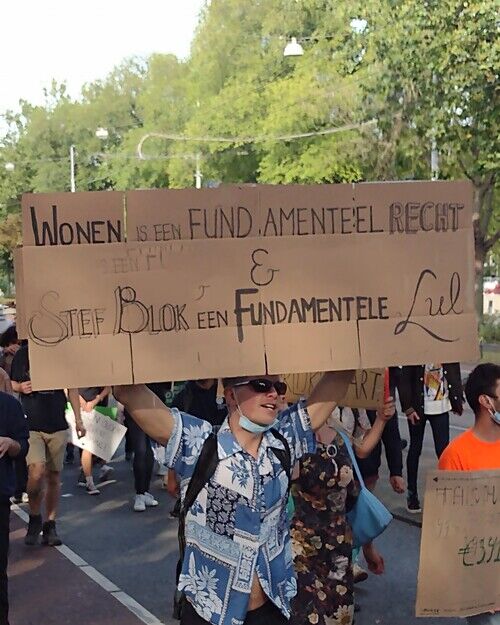 WONEN IS EEN FUNDAMENTEEL RECHT
&
STEF BLOK EEN FUNDAMENTELE LUL